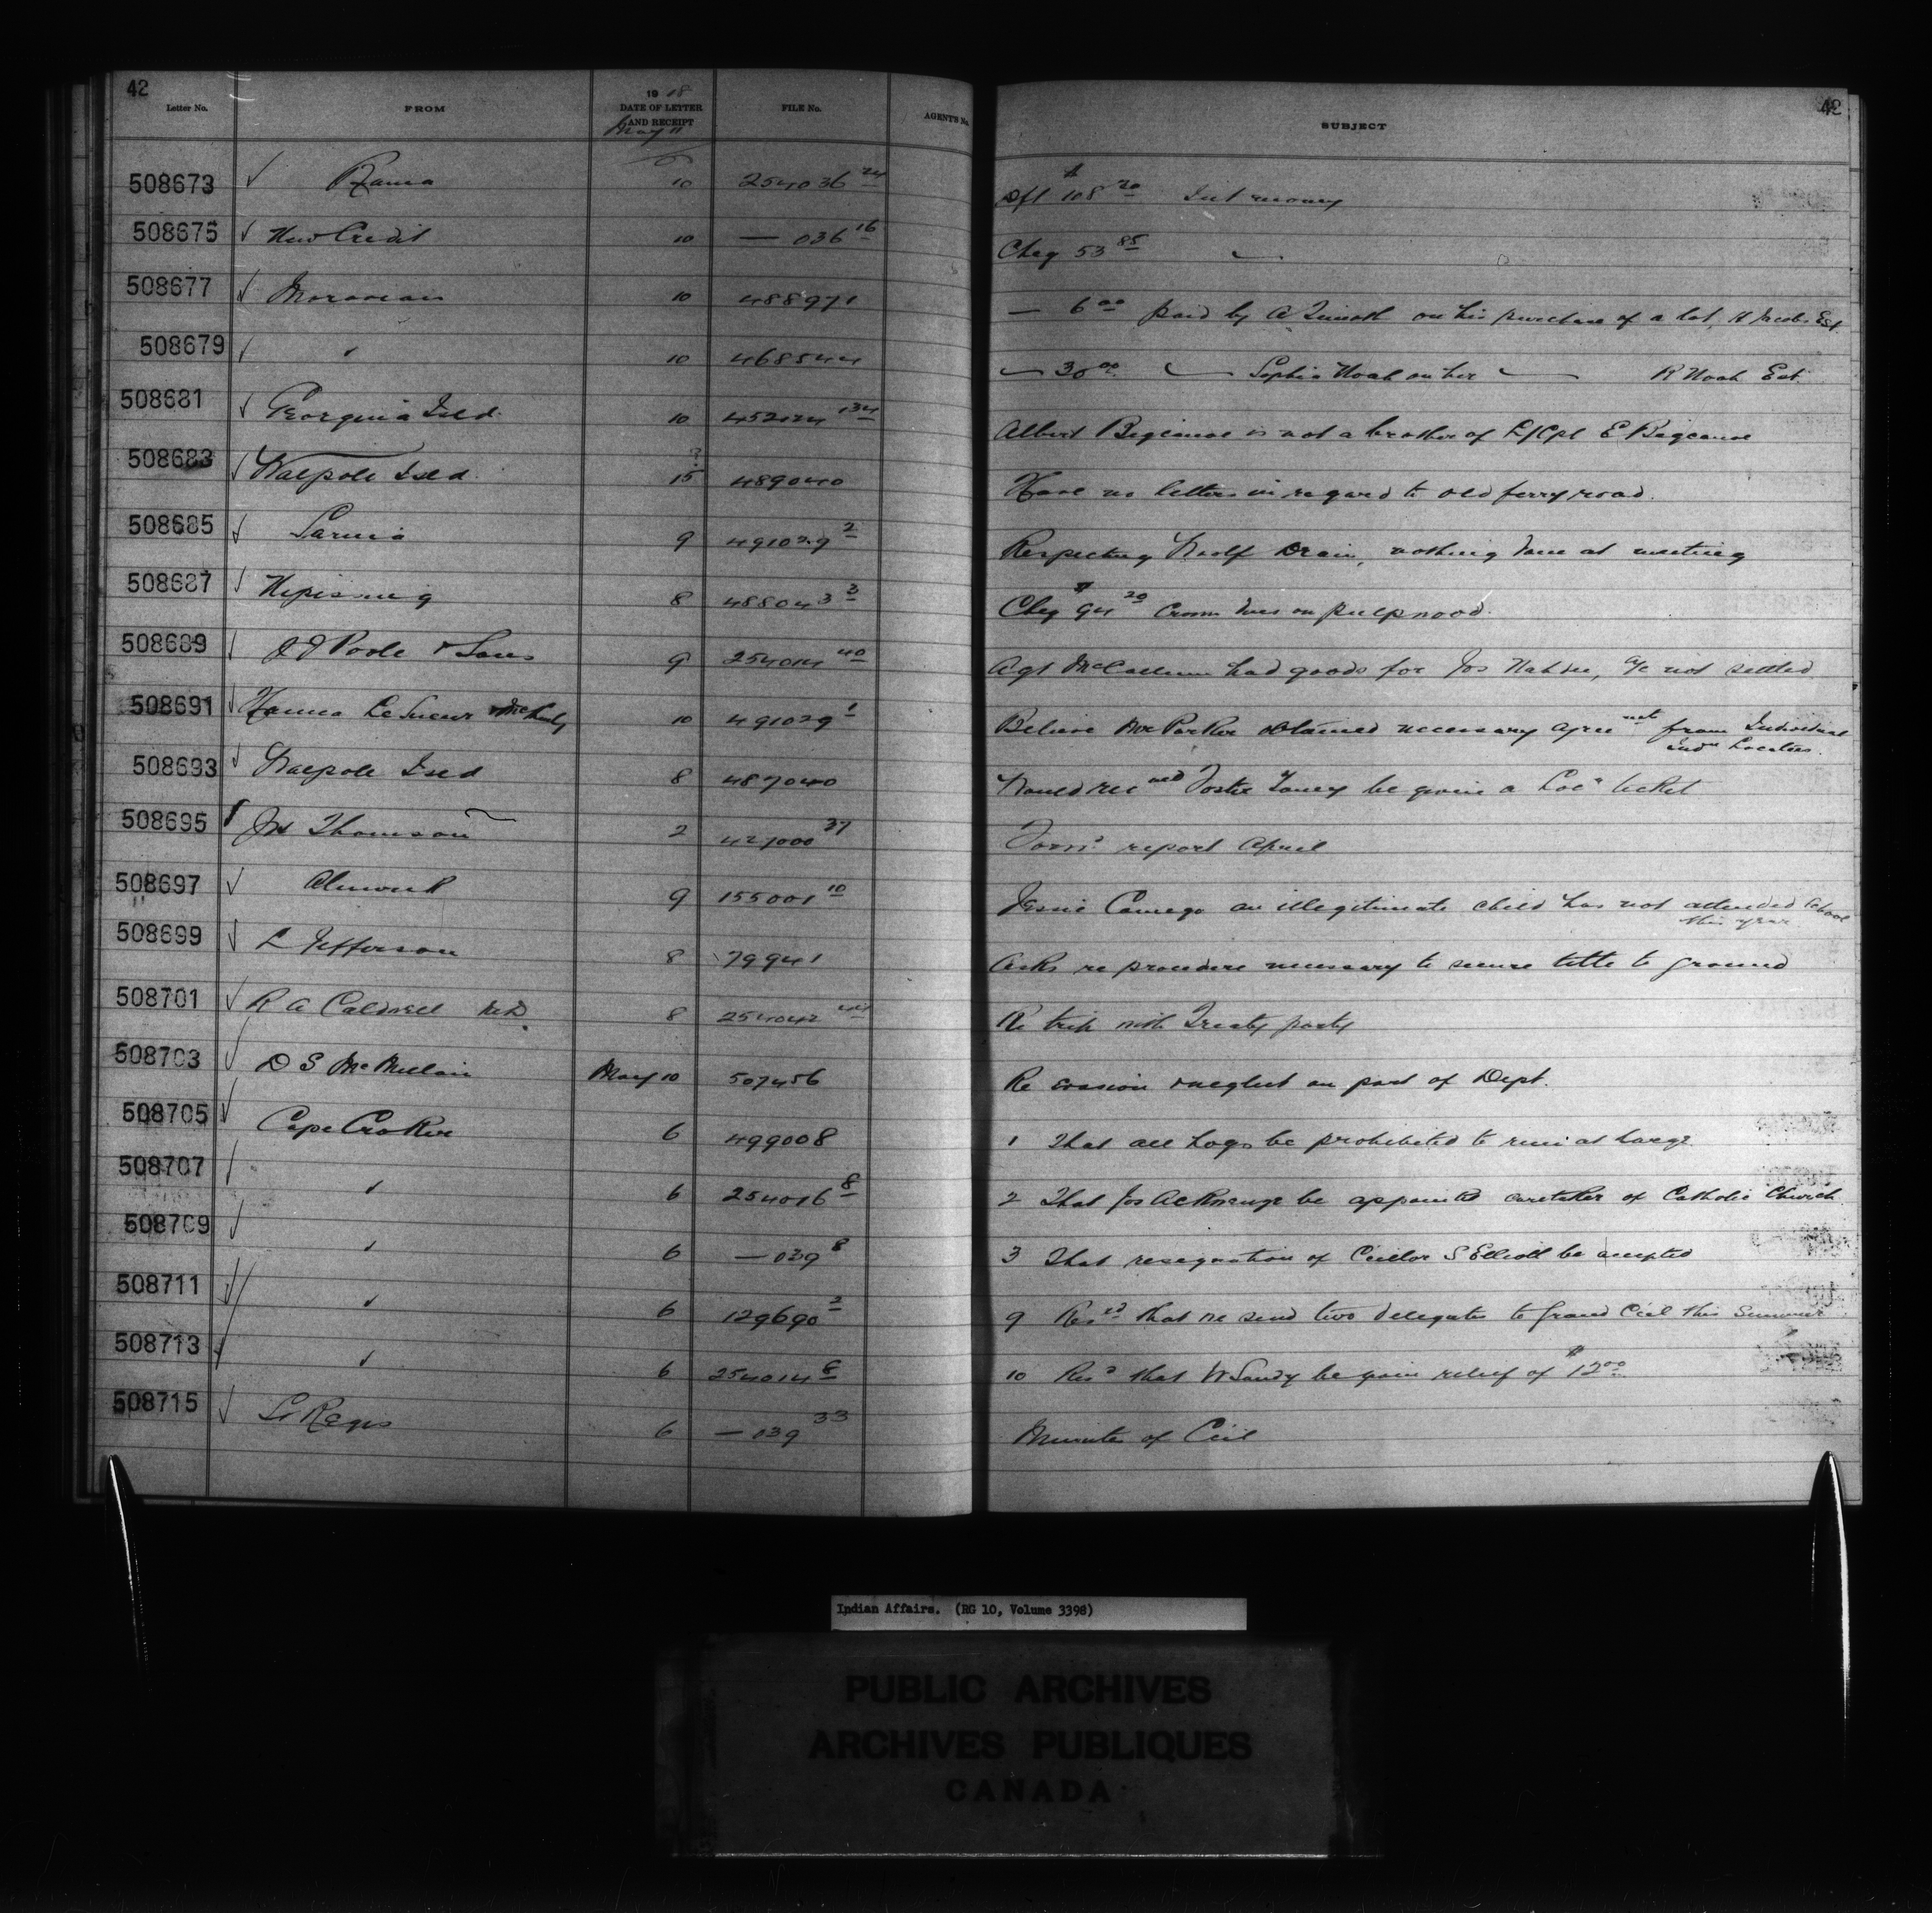 42
Letter No. FROM 1918 DATE OF LETTER AND RECEIPT FILE No. AGENT'S No. SUBJECT 42
May 11
508673 Rama 10 254036 24 Dft $108 20 Int money
508675 New Credit 10 — 036 16 Cheq 53 85 "
508677 Moravian 10 488971 — 6 00 paid by A on his purchase of a lot, H Jacobs Est.
508679 " 10 468544 " 30 00 " Sophia Noah on her " R Noah Est
508681 Georgina Isld 10 452124 134 Albert Bigcanoe is not a brother of L/Cpl E Bigcanoe
508683 Walpole Isld. 15 ? 489040 Have no letters in regard to old ferry road.
508685 Sarnia 9 491029 2 Respecting Woolf Drain, nothing done at meeting
508687 Nipissing 8 488043 3 Cheq $94 20 Crown dues on pulpwood.
508689 J J Poole & Sons 9 254014 40 Agt McCallum had goods for Jos a/c not settled
508691 Hanna LeSueur & McKinley 10 491029 1 Believe Mr Parker obtained necessary agreement from Individual Indn Locatees.
508693 Walpole Isld 8 487040 Would recmed be given a Locn ticket
508695 Jos Thomson 2 427000 37 Form? report April
508697 Alnwick 9 155001 10 Jessie Comego an illegitimate child has not attended school this year.
508699 L Jefferson 8 79941 Asks re procedure necessary to secure title to ground
508701 R A Caldwell M.D. 8 254042 44 Re trip with Treaty party
508703 D S McMillan May 10 507456 Re evasion & neglect on part of Dept.
508705 Cape Croker 6 499008 1 That all hogs be prohibited to run at large
508707 " 6 254016 8 2 That Jos Akiwenzie be appointed caretaker of Catholic Church
508709 " 6 — 039 8 3 That resignation of Cncllor S Elliott be accepted
508711 " 6 129690 2 9 Resd that we send two delegates to Grand Ccil this Summer
508713 " 6 254014 8 10 Resd that W Sandy be given relief of $12 00
508715 St Regis 6 — 039 33 Minutes of Ccil
Indian Affairs. (RG 10, Volume 3398)
PUBLIC ARCHIVES
ARCHIVES PUBLIQUES
CANADA